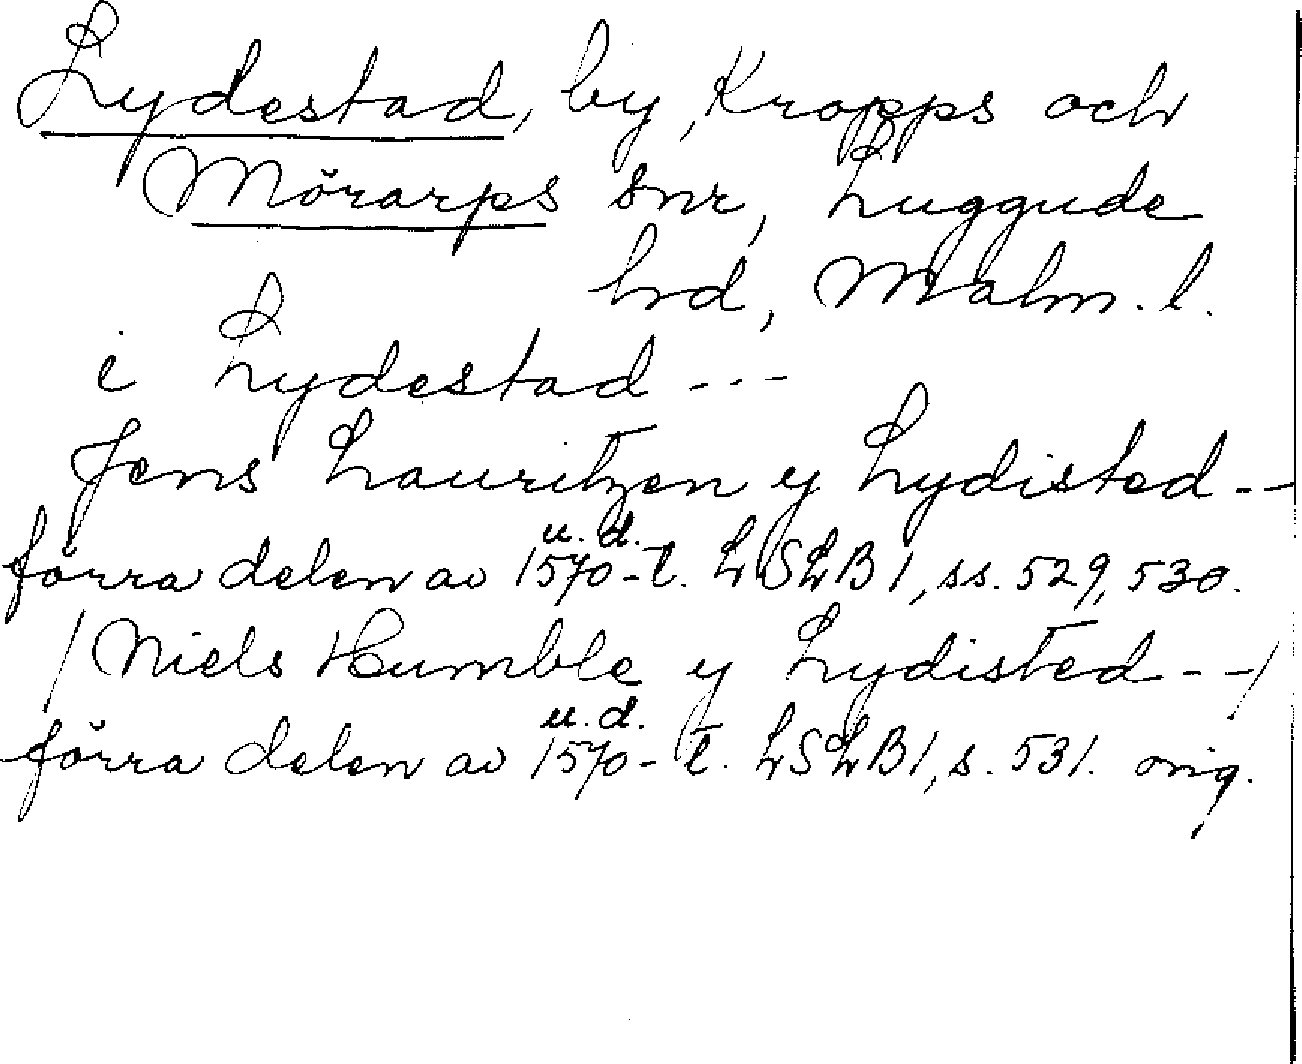 Lydestad, by, Kropps och
Mörarps snr, Luggude
hd, Malm. l.
i Lydestad ---
Jens Lauritzen y Lydisted --
u. d.
förra delen av 1570-t. LSLB1, ss. 529, 530.
/Niels Humble y Lydisted --/
u. d.
förra delen av 1570-t. LSLB1, s. 531. orig.